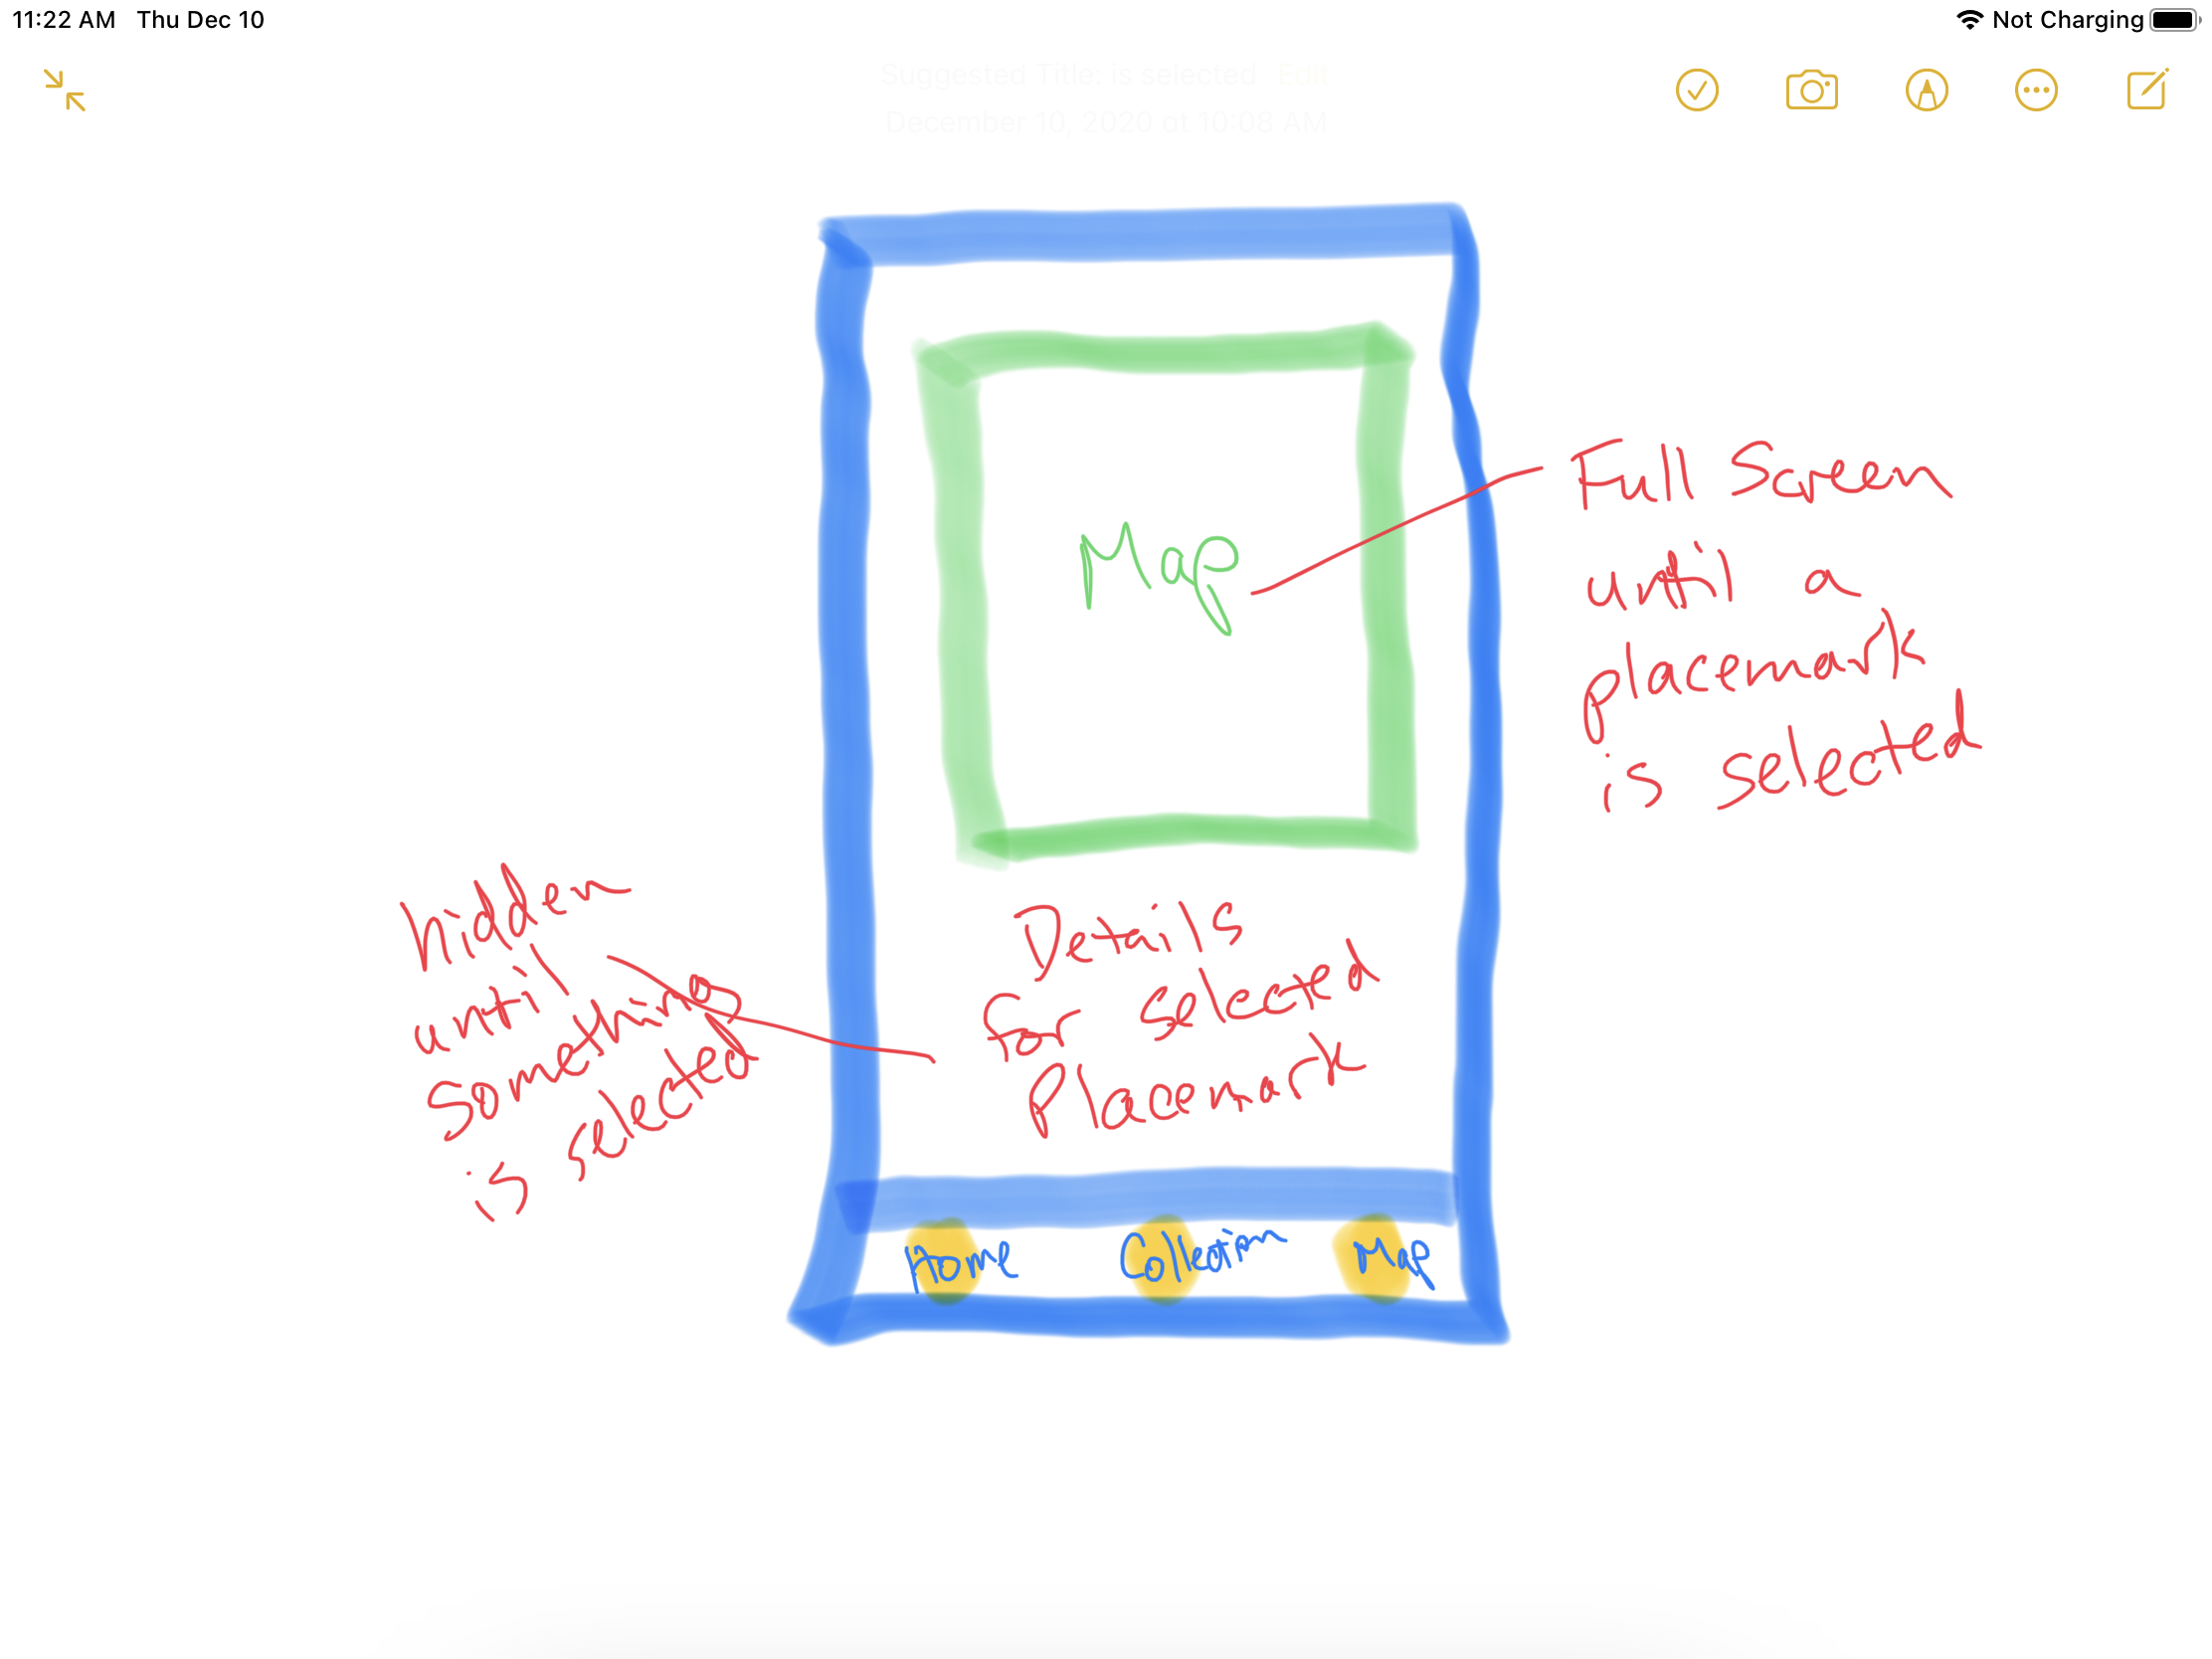 11:22 AM Thu Dec 10
Not Charging
Suggested Title: is selected Edit
December 10, 2020 at 10:08 AM
Map
Full Screen
until a
placemark
is selected
hidden
until
Something
is selected
Details
for selected
Placemark
Home Collection Map